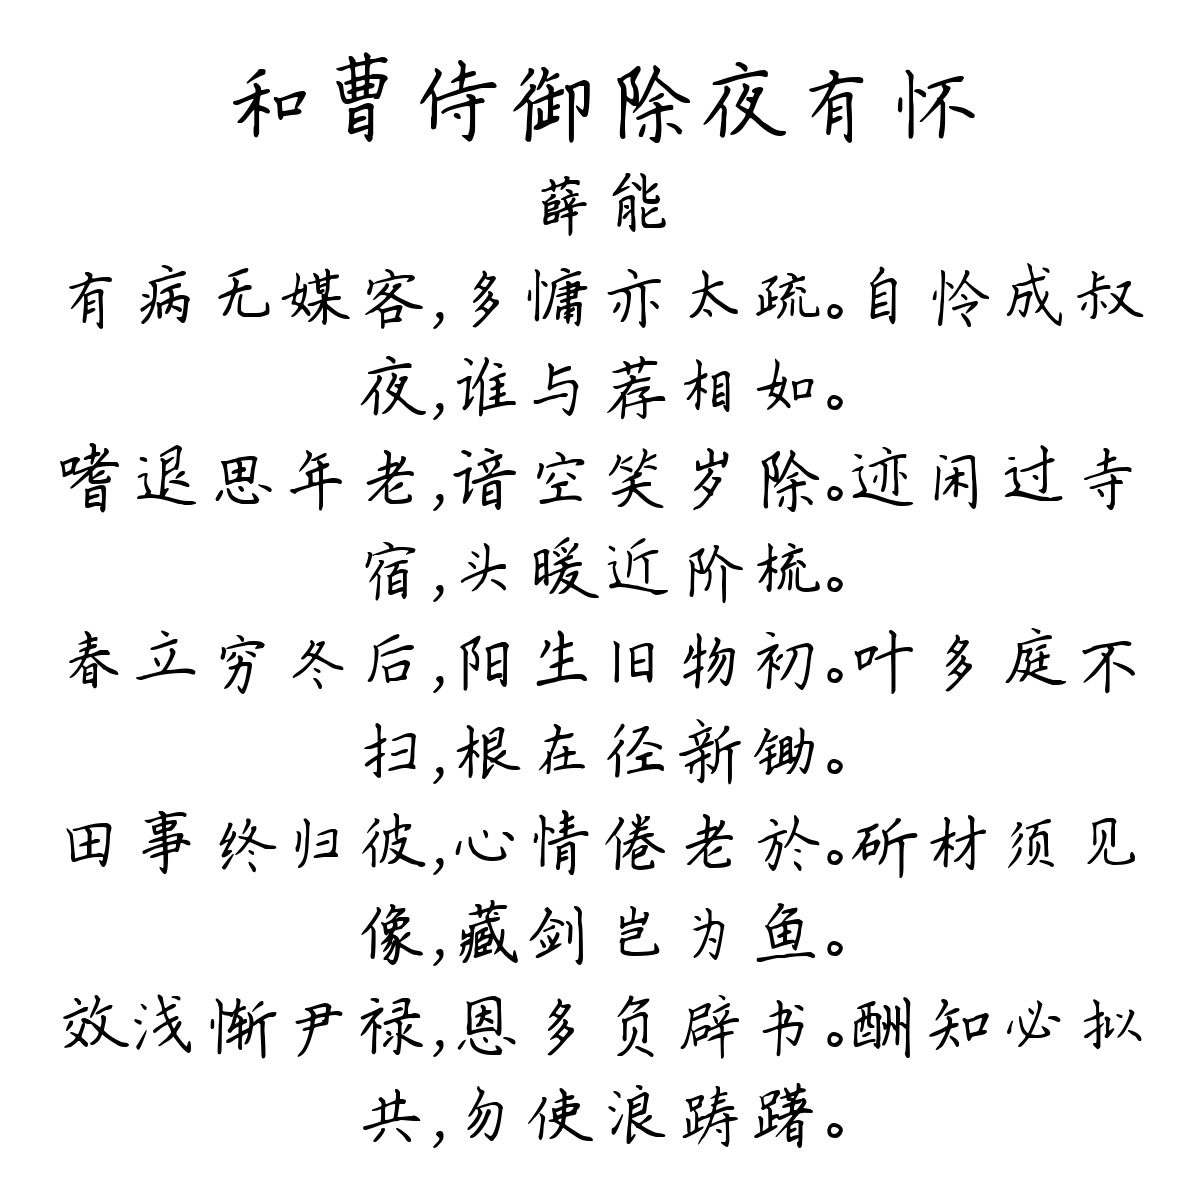 和曹侍御除夜有怀
薛能
有病无媒客,多慵亦太疏。自怜成叔
夜,谁与荐相如。
嗜退思年老,谙空笑岁除。迹闲过寺
宿,头暖近阶梳。
春立穷冬后,阳生旧物初。叶多庭不
扫,根在径新锄。
田事终归彼,心情倦老於。斫材须见
像,藏剑岂为鱼。
效浅惭尹禄,恩多负辟书。酬知必拟
共,勿使浪踌躇。